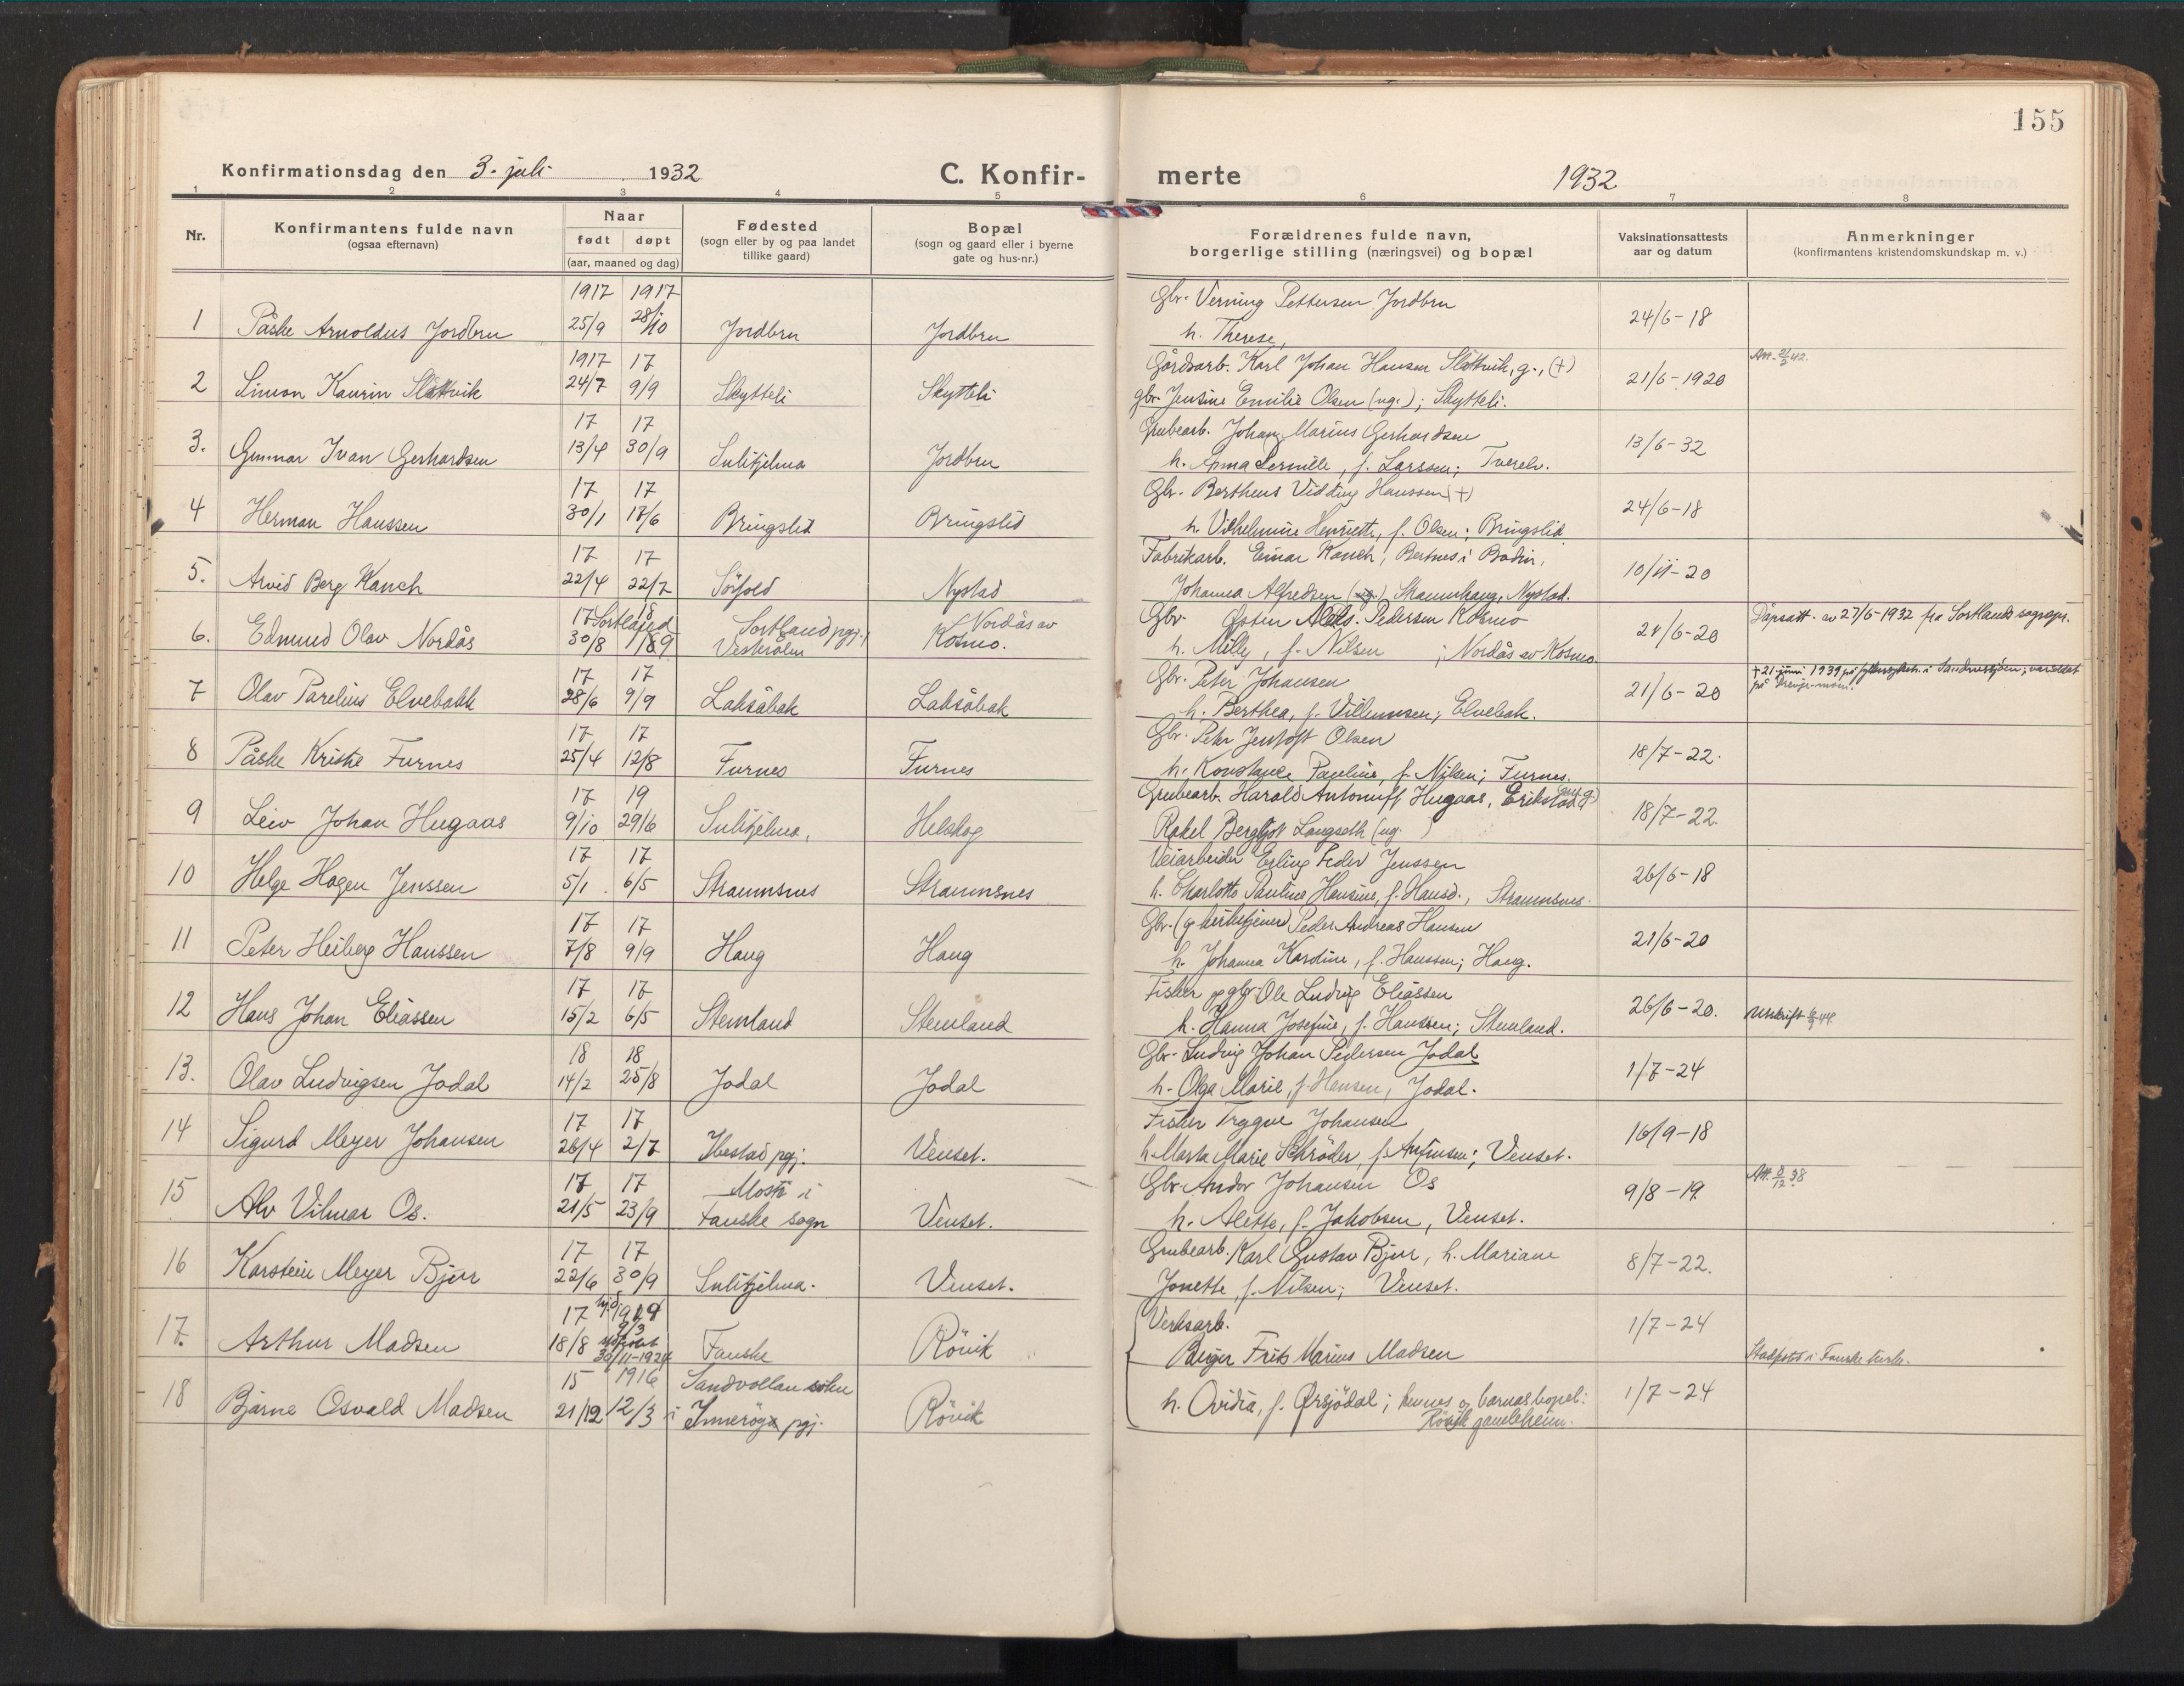 155
Konfirmationsdag den 3. juli 1932
C. Konfir-
merte
1932
1 2 3 4 5 6 7 8
Nr.
Konfirmantens fulde navn
(ogsaa efternavn)
Naar
født døpt
(aar, maaned og dag)
Fødested
(sogn eller by og paa landet
tillike gaard)
Bopæl
(sogn og gaard eller i byerne
gate og hus-nr.)
Forældrenes fulde navn,
borgerlige stilling (næringsvei) og bopæl
Vaksinationsattests
aar og datum
Anmerkninger
(konfirmantens kristendomskundskap m. v.)
1917 1917 Gbr. Verning Pettersen Jordbru
1 Påske Arnoldus Jordbru 25/9 28/10 Jordbru Jordbru h. Therese, 24/6-18
1917 17 Gårdsarb. Karl Johan Hansen Slåttvik, g., (+)
2 Simon Kaurin Slåttvik 24/7 9/9 Skytteli Skytteli gbr. Jensine Emilie Olsen (ug.); Skytteli. 21/6-1920
17 17 Grubearb. Johan Marius Gerhardsen
3. Gunnar Ivan Gerhardsen 13/4 30/9 Sulitjelma Jordbru h. Anna Pernille, f. Larssen; Tverelv. 13/6-32
17 17 Gbr. Bertheus Vidding Hanssen (+)
4 Herman Hanssen 30/1 17/6 Bringslid Bringslid h. Vilhelmine Henriette, f. Olsen; Bringslid 24/6-18
17 17 Fabrikarb. Einar Kanch, Bertnes i Bodin,
5. Arvid Berg Kanch 22/4 22/7 Sörfold Nystad Johanna Alfredsen Skaumhaug, Nystad. 10/11-20
17 18 Sortland Sortland pgj., Nordås av Gbr. Østen Pedersen Kosmo Dåpsatt. av 27/6-1932 fra Sortlands sognepr.
6. Edmund Olav Nordås 30/8 1/9 Vesterålen Kosmo. h. Milly, f. Nilsen; Nordås av Kosmo. 21/6-20
17 17 Gbr. Peter Johansen + 21 juni 1939 på sykehus i Sandnessjøen;
7 Olav Parelius Elvebakk 28/6 9/9 Laksåbak Laksåbak h. Berthea, f. Villumsen; Elvebak. 21/6-20
17 17 Gbr. Peter Jentoft Olsen
8 Påske Kristie Furnes 25/4 12/8 Furnes Furnes h. Konstance Pauline, f. Nilsen; Furnes. 18/7-22.
17 19 Grubearb. Harald Antoniuff Hugaas, Erikstad (ug.)
9 Leiv Johan Hugaas 9/10 29/6 Sulitjelma, Helskog Rakel Bergljot Langseth (ug. ) 18/7-22.
17 17 Veiarbeider Erling Peder Jenssen
10 Helge Hagen Jenssen 5/1 6/5 Straumsnes Straumsnes h. Charlotte Pauline Hansine, f. Hansd., Straumsnes. 26/6-18
17 17 Gbr. (g. kirketjener) Peder Andreas Hansen
11 Peter Heiberg Hanssen 7/8 9/9 Haug Haug h. Johanna Kardine, f. Hanssen; Haug. 21/6-20
17 17 Fisker og gbr. Ole Ludvig Eliassen
12 Hans Johan Eliassen 15/2 6/5 Stemland Stemland h. Hanna Josefine, f. Hanssen; Stemland. 26/6-20. Utskrift 44.
18 18 Gbr. Ludvig Johan Pedersen Jodal
13. Olav Ludvigsen Jodal 14/2 25/8 Jodal Jodal h. Olga Marie, f. Hansen, Jodal. 1/7-24
17 17 Fisker Trygve Johansen
14 Sigurd Meyer Johansen 26/4 2/7 Ibestad pgj. Venset. h. Marta Marie Schröder, f. Antinsen; Venset. 16/9-18
17 17 Mosti i Gbr. Andor Johansen Os Att. 8/12 38
15 Alv Vilmar Os. 21/5 23/9 Fauske sogn Venset. h. Alette, f. Jakobsen, Venset. 9/8-19.
17 17 Grubearb. Karl Gustav Bjur, h. Mariane
16 Karstein Meyer Bjur 22/6 30/9 Sulitjelma. Venset. Jonette, f. Nilsen; Venset. 8/7-22.
17 hjd. 1919 9/3 Verksarb. 1/7-24
17. Arthur Madsen 18/8 30/11-1924 Fauske Rövik Birger Frits Marius Madsen Stadfestet i Fauske kirke.
15 1916 Sandvollan sokn
18 Bjarne Osvald Madsen 21/12 12/3 i Inderöy pgj. Rövik h. Ovidia, f. Ørsjödal; hennes og barnas bopel: 1/7-24
Rövik gamleheim.